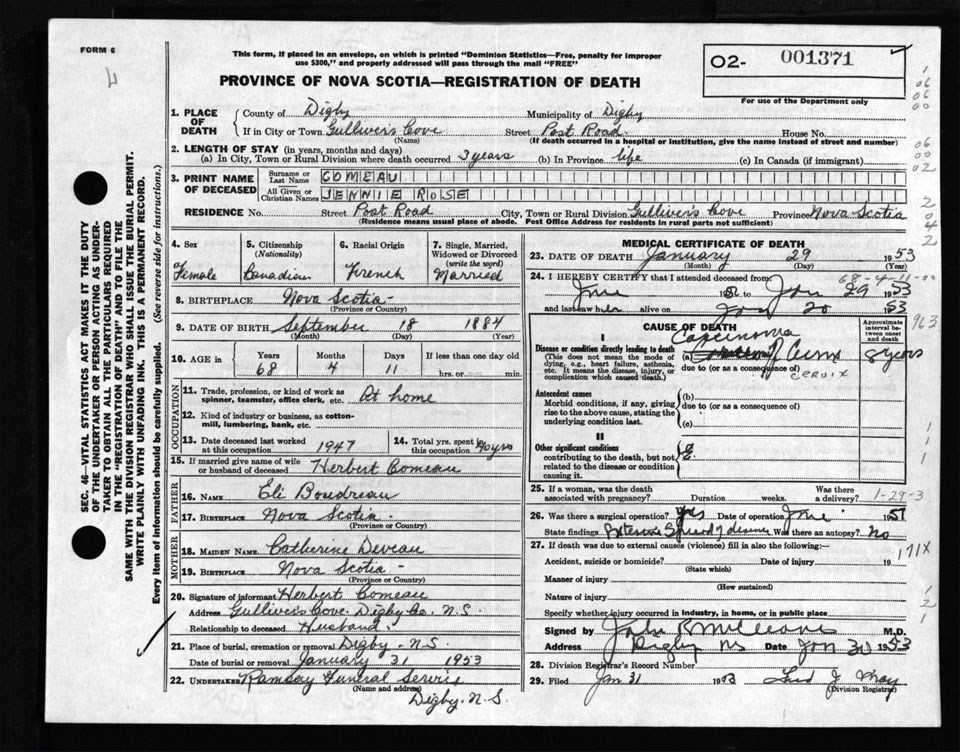 FORM 6
This form, if placed in an envelope, on which is printed "Dominion Statistics—Free, penalty for improper
use $300," and properly addressed will pass through the mail "FREE"
PROVINCE OF NOVA SCOTIA—REGISTRATION OF DEATH
O2- 001371
For use of the Department only
SEC. 46—VITAL STATISTICS ACT MAKES IT THE DUTY
OF THE UNDERTAKER OR PERSON ACTING AS UNDER-
TAKER TO OBTAIN ALL THE PARTICULARS REQUIRED
IN THE "REGISTRATION OF DEATH" AND TO FILE THE
SAME WITH THE DIVISION REGISTRAR WHO SHALL ISSUE THE BURIAL PERMIT.
WRITE PLAINLY WITH UNFADING INK. THIS IS A PERMANENT RECORD.
Every item of information should be carefully supplied. (See reverse side for instructions.)
1. PLACE OF DEATH County of Digby Municipality of Digby
If in City or Town Gulliver's Cove Street Post Road House No.
(Name) (If death occurred in a hospital or institution, give the name instead of street and number)
2. LENGTH OF STAY (in years, months and days)
(a) In City, Town or Rural Division where death occurred 3 years (b) In Province life (c) In Canada (if immigrant)
3. PRINT NAME OF DECEASED Surname or Last Name COMEAU
All Given or Christian Names JENNIE ROSE
RESIDENCE No. Street Post Road City, Town or Rural Division Gulliver's Cove Province Nova Scotia
(Residence means usual place of abode. Post Office Address for residents in rural parts not sufficient)
4. Sex Female
5. Citizenship (Nationality) Canadian
6. Racial Origin French
7. Single, Married, Widowed or Divorced (write the word) Married
8. BIRTHPLACE Nova Scotia-
(Province or Country)
9. DATE OF BIRTH September 18 1884
(Month) (Day) (Year)
10. AGE in Years 68 Months 4 Days 11 If less than one day old hrs. or min.
OCCUPATION
11. Trade, profession or kind of work as spinner, teamster, office clerk, etc. At home
12. Kind of industry or business, as cotton-mill, lumbering, bank, etc.
13. Date deceased last worked at this occupation 1947
14. Total yrs. spent in this occupation 40 yrs
15. If married give name of wife or husband of deceased Herbert Comeau
FATHER
16. NAME Eli Boudreau
17. BIRTHPLACE Nova Scotia-
(Province or Country)
MOTHER
18. MAIDEN NAME Catherine Deveau
19. BIRTHPLACE Nova Scotia-
(Province or Country)
20. Signature of informant Herbert Comeau
Address Gulliver's Cove. Digby Co. N.S.
Relationship to deceased Husband.
21. Place of burial, cremation or removal Digby - N.S.
Date of burial or removal January 31 1953
22. UNDERTAKER Ramsay Funeral Servis
(Name and address)
Digby. N.S.
MEDICAL CERTIFICATE OF DEATH
23. DATE OF DEATH January 29 1953
(Month) (Day) (Year)
68-4-11-00
24. I HEREBY CERTIFY that I attended deceased from
June to Jan 29 1953
and last saw her alive on Jan 20 1953
CAUSE OF DEATH
Approximate interval between onset and death
I
Disease or condition directly leading to death
(This does not mean the mode of dying, e.g., heart failure, asthenia, etc. It means the disease, injury, or complication which caused death.)
Carcinoma
(a) Cervix 8 years
due to (or as a consequence of)
CERVIX
Antecedent causes
Morbid conditions, if any, giving rise to the above cause, stating the underlying condition last.
(b)
due to (or as a consequence of)
(c)
II
Other significant conditions
contributing to the death, but not related to the disease or condition causing it.
25. If a woman, was the death associated with pregnancy? Duration weeks. Was there a delivery?
1-29-3
26. Was there a surgical operation? yes Date of operation June 1951
State findings Extensive Spread of disease Was there an autopsy? No
27. If death was due to external causes (violence) fill in also the following:—
171X
Accident, suicide or homicide? Date of injury 19
(State which)
Manner of injury
(How sustained)
Nature of injury
Specify whether injury occurred in industry, in home, or in public place
Signed by M.D.
Address Digby NS Date Jan 30 1953
28. Division Registrar's Record Number
29. Filed Jan 31 1953
(Division Registrar)